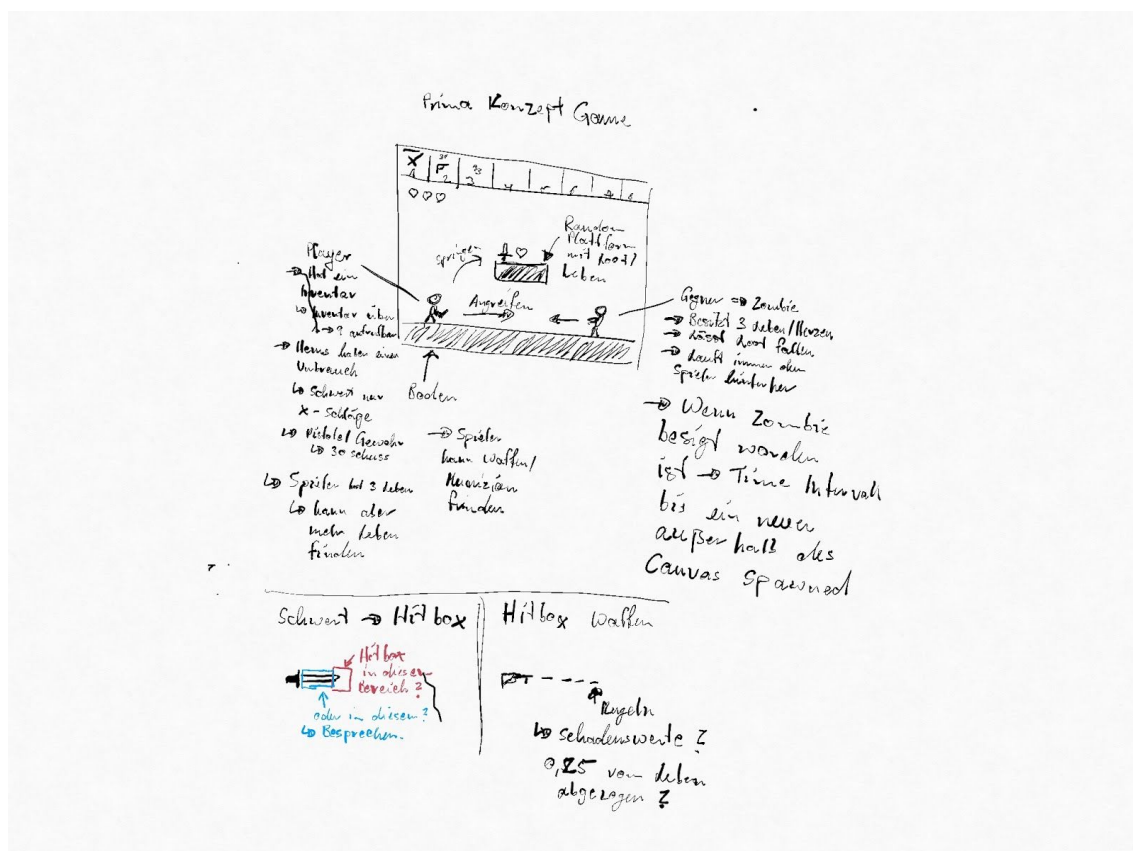 Prima Konzept Game
X
1 2 3 4 5 6 7 8
Random
Plattform
mit Loot/
Leben
springen
Player
Angreifen
→ Hat ein
Inventar
↳ Inventar über
→ ? aufrufbar
→ Items haben einen
Verbrauch
↳ Schwert nur
X-Schläge
↳ Pistole/Gewehr
↳ 30 schuss
↳ Spieler hat 3 Leben
↳ kann aber
mehr Leben
finden
Boden
→ Spieler
kann Waffen/
Munizion
finden
Gegner => Zombie
→ Besitzt 3 Leben/Herzen
→ lässt Loot fallen
→ Lauft immer dem
Spieler hinterher
→ Wenn Zombie
besigt worden
ist → Time Intervall
bis ein neuer
außerhalb des
Canvas spawned
Schwert → Hitbox
Hitbox
in diesen
Bereich ?
oder in diesen ?
↳ Besprechen.
Hitbox Waffen
Kugeln
↳ Schadenswerte ?
0,25 vom Leben
abgezogen ?